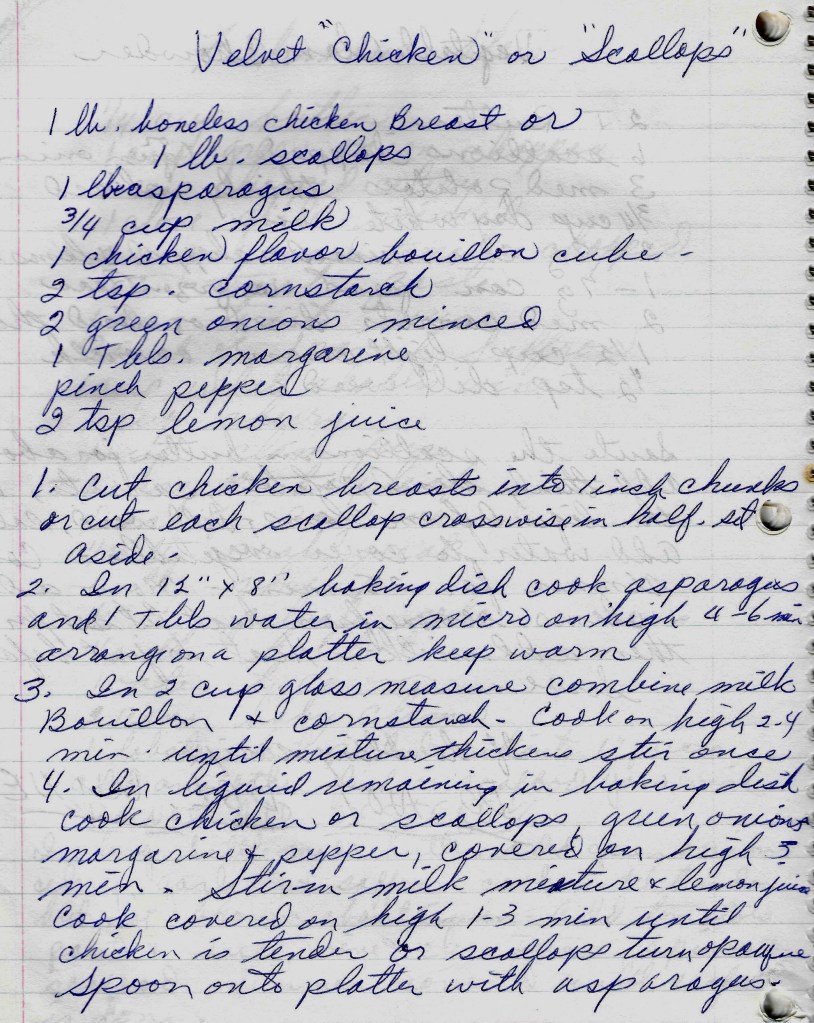 Velvet "Chicken" or "Scallops"
1 lb. boneless chicken Breast or
1 lb. scallops
1 lb asparagus
3/4 cup milk
1 chicken flavor bouillon cube -
2 tsp. cornstarch
2 green onions minced
1 Tbls. margarine
pinch pepper
2 tsp lemon juice
1. Cut chicken breasts into 1 inch chunks
or cut each scallop crosswise in half. set
aside -
2. In 12" x 8" baking dish cook asparagus
and 1 Tbls water in micro on high 4-6 min
arrange on a platter keep warm
3. In 2 cup glass measure combine milk
Bouillon + cornstarch - Cook on high 2-4
min. until mixture thickens stir once
4. In liquid remaining in baking dish
cook chicken or scallops, green onions
margarine & pepper, covered on high 5
min. Stir in milk mixture & lemon juice
Cook covered on high 1-3 min until
chicken is tender or scallops turn opaque
Spoon onto platter with asparagus.